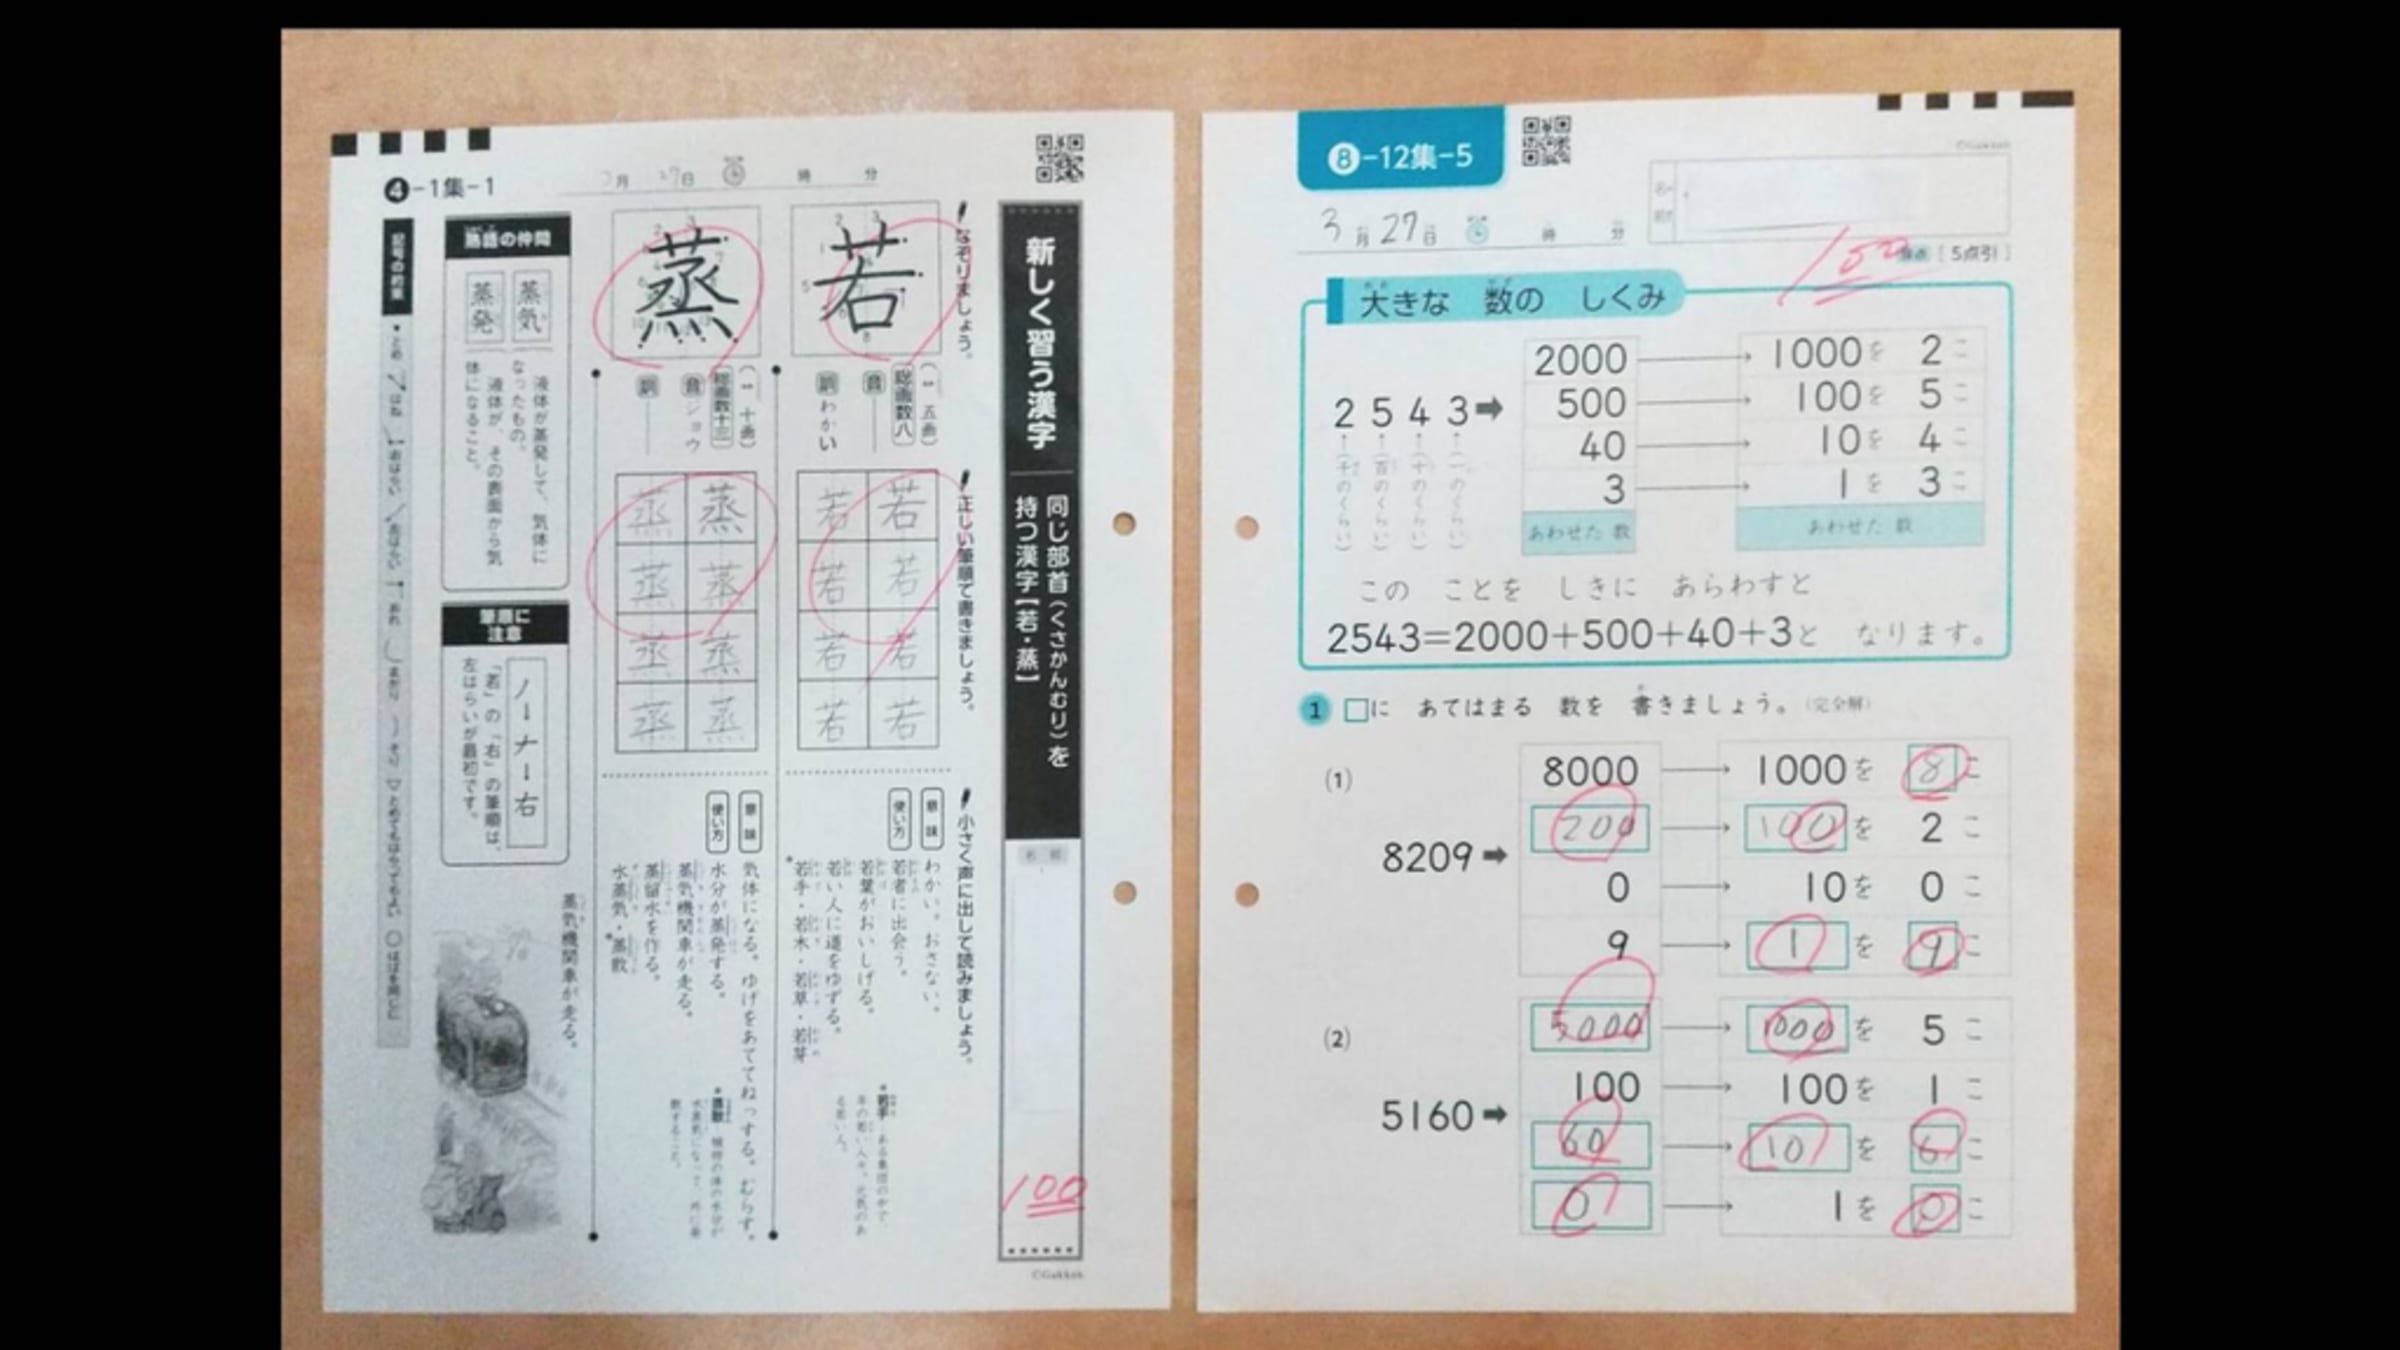 4-1集-1
月 27日 時 分
新しく習う漢字
同じ部首(くさかんむり)を
持つ漢字【若・蒸】
100
©Gakken
なぞりましょう。
若
総画数八
音
訓 わかい
正しい筆順で書きましょう。
若 若
若 若
若 若
若 若
小さく声に出して読みましょう。
意味 わかい。おさない。
使い方 若者に出会う。
若葉がおいしげる。
若い人に道をゆずる。
*若手・若木・若草・若芽
蒸
総画数十三
音 ジョウ
訓
蒸 蒸
蒸 蒸
蒸 蒸
蒸 蒸
意味 気体になる。ゆげをあててねっする。むらす。
使い方 水分が蒸発する。
蒸気機関車が走る。
蒸留水を作る。
水蒸気・*蒸散
蒸気機関車が走る。
熟語の仲間
蒸気
液体が蒸発して、気体に
なったもの。
蒸発
液体が、その表面から気
体になること。
筆順に
注意
ノ→ナ→右
「若」の「右」の筆順は、
左はらいが最初です。
8-12集-5
©Gakken
3月27日 時 分
100
[5点引]
大きな 数の しくみ
2543➡
(千のくらい)
(百のくらい)
(十のくらい)
(一のくらい)
2000 → 1000を 2こ
500 → 100を 5こ
40 → 10を 4こ
3 → 1を 3こ
あわせた 数 あわせた 数
この ことを しきに あらわすと
2543=2000+500+40+3と なります。
1 □に あてはまる 数を 書きましょう。(完全解)
(1)
8209➡
8000 → 1000を 8こ
200 → 100を 2こ
0 → 10を 0こ
9 → 1を 9こ
(2)
5160➡
5000 → 1000を 5こ
100 → 100を 1こ
60 → 10を 6こ
0 → 1を 0こ